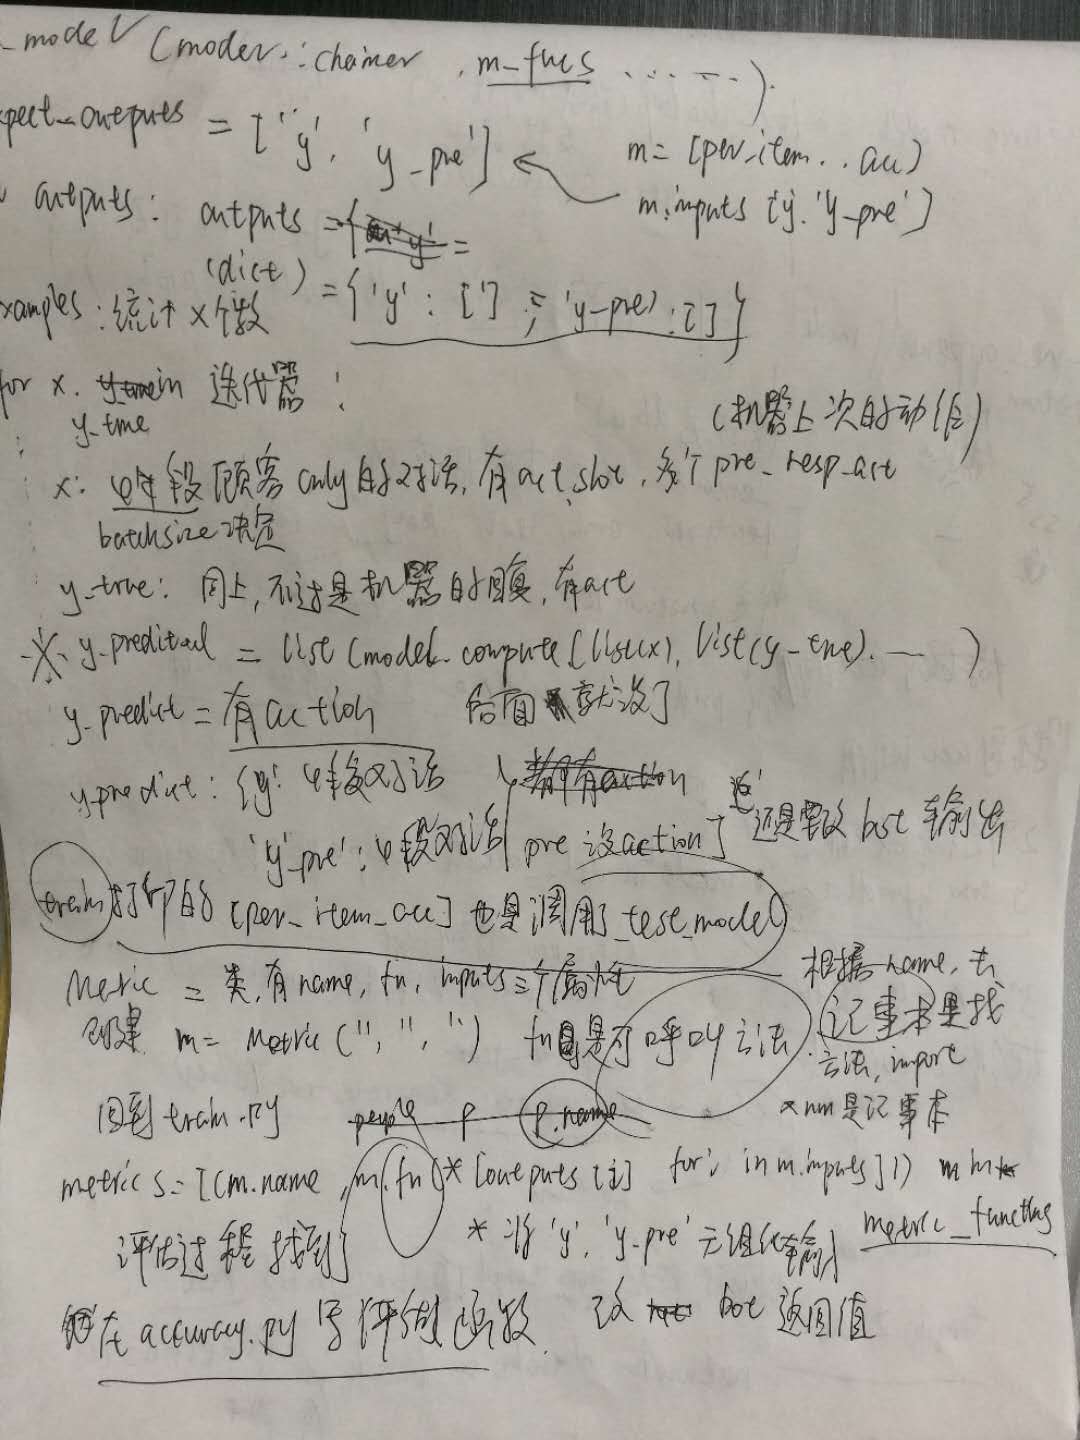 _model (model: chainer , m_fucs ......).
xpect_outputs = ['y', 'y_pre'] ← m= [per_item.. acc)
m.inputs ['y', 'y_pre']
outputs: outputs =
(dict) ={'y': [']; 'y_pre': []}
xamples: 统计x个数
for x. in 迭代器:
y_true
(机器上次的动作)
x: 段顾客only的对话,有act,slot,多个pre_resp_act
batchsize决定
y_true: 同上,不过是机器的回复,有act
※ y_predicted = list (model.compute(list(x), list(y_true). ...)
y_predict = 有action 后面就没了
y predict: {'y': 4段对话 都有action
'y'_pre': 4段对话 pre 没action] 还是要改 bot 输出
train打印的 [per_item_acc] 也是调用了_test_model
Metric = 类,有name, fn, inputs三个属性 根据name,去
创建 m= Metric ('', '', '') fn是可呼叫方法 记事本里找
方法, import
回到train.py people p p.name xnm是记事本
metrics=[(m.name, m.fn(*[outputs[i] for i in m.inputs])) m in
评估过程找到 * 将'y', 'y_pre' 元组化输入 metric_functions
在accuracy.py 写评估函数 改 bot 返回值